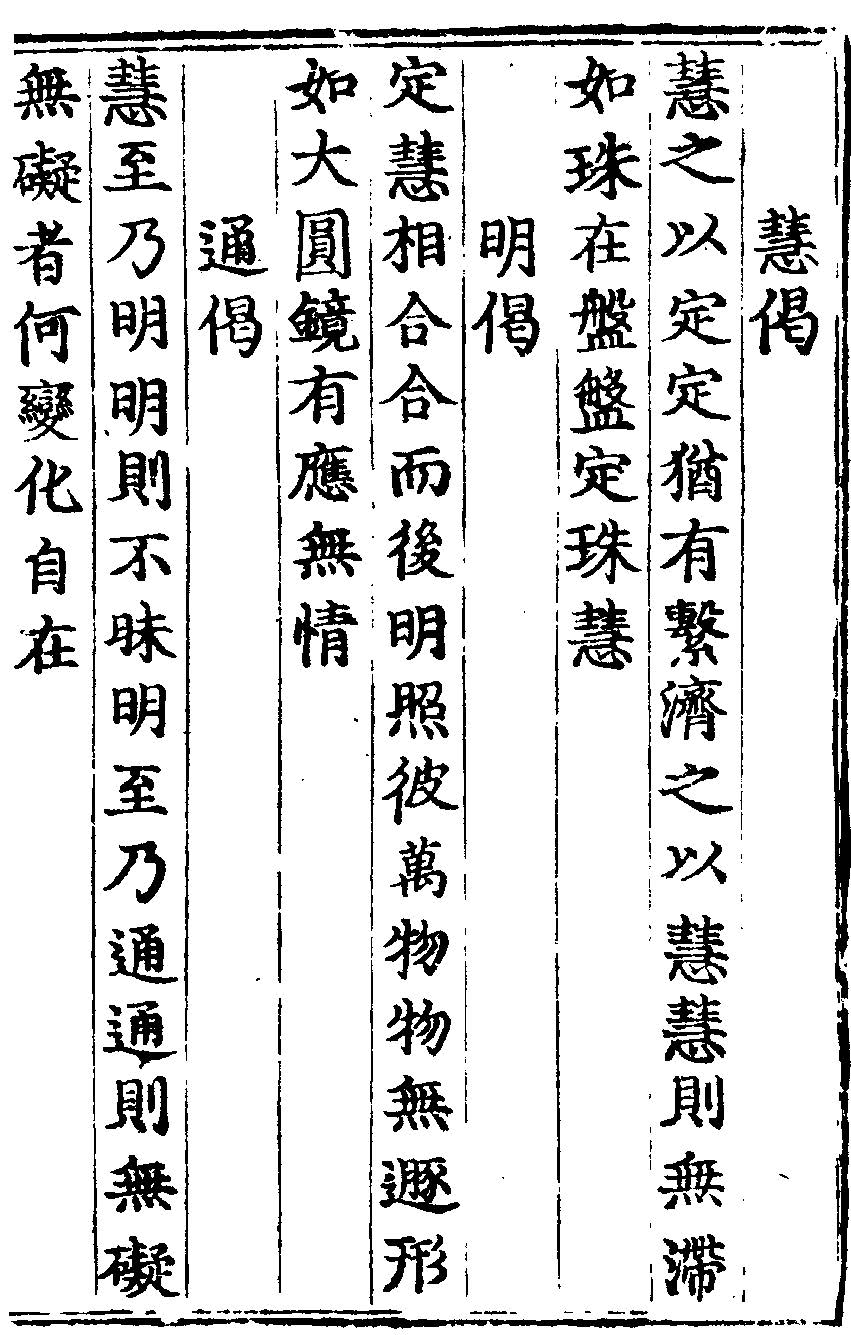 慧偈
慧之以定定猶有繫濟之以慧慧則無滯
如珠在盤盤定珠慧
明偈
定慧相合合而後明照彼萬物物無遯形
如大圓鏡有應無情
通偈
慧至乃明明則不昧明至乃通通則無礙
無礙者何變化自在